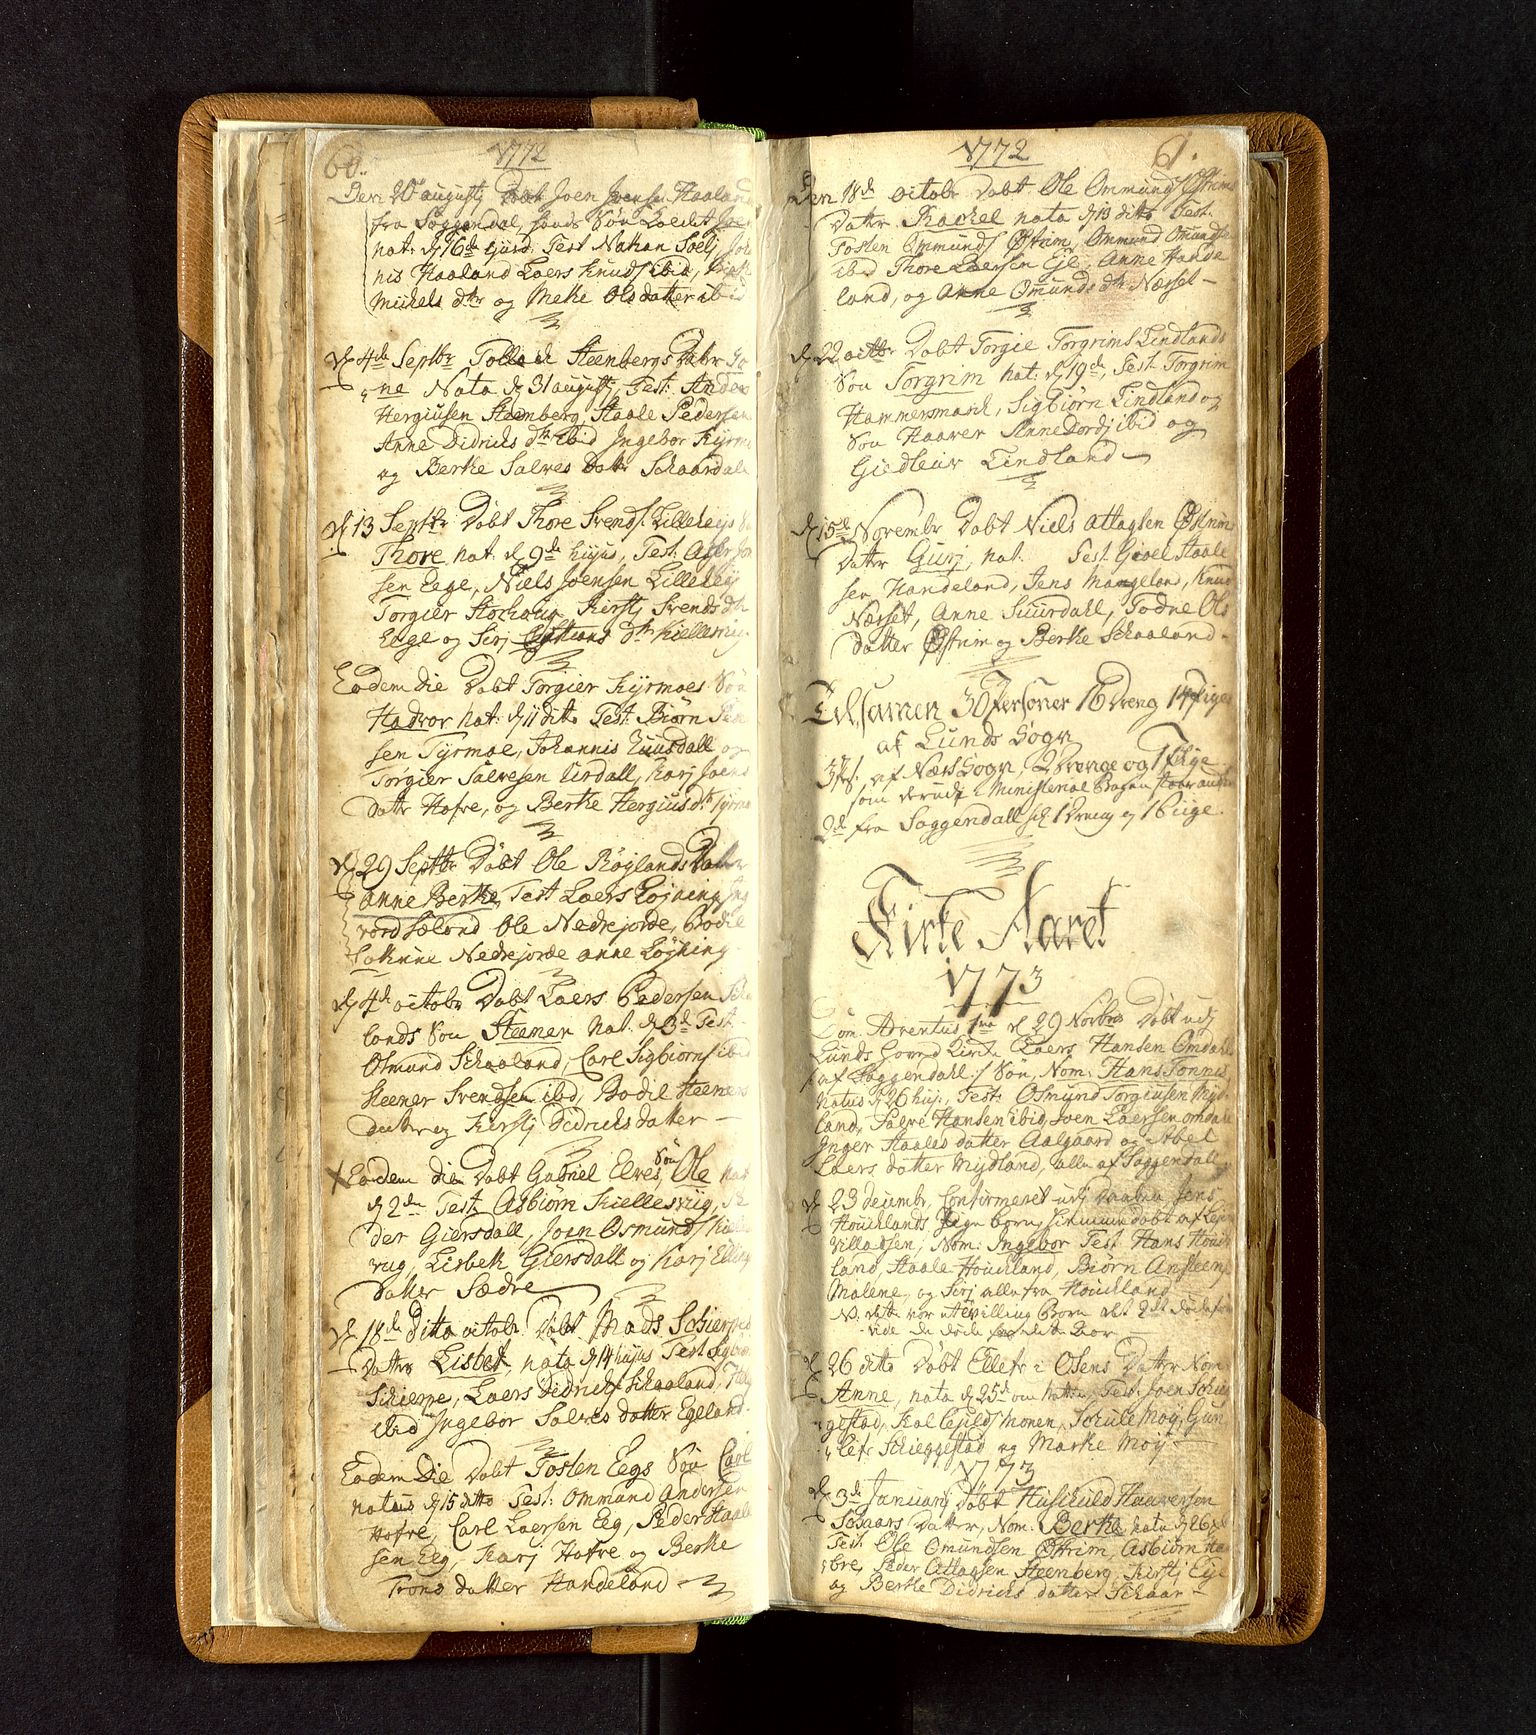 60.
1772
Den 20 augustj Døbt Joen Joensen Haaland
fra Soggendal, hands Søn kaldet Joen
nat: d 16de ejusd. Test Nathan Soelj,
nis Haaland Laers Knuds ibid,
Mickels dtr og Mette Olsdatter ibid
d 4de Septbr Tollach Steenbergs Datter
ne Nata d 31 augustj, Test: Anders
Hergiusen Steenberg Staale Pedersen
Anne Didrichs dtr ibid Ingebor Kyrmo
og Berthe Salves Datter Schaardal
d 13 Septbr Døbt Thore Svends. Lilleheys
Thore nat. d 9de hujus, Test: Asser
sen Eege, Niels Joensen Lillehey
Torgier Stochaug Kirstj Svends dtr
Eege og Sirj dtr Kiellesvig
Eadem die Døbt Torgier Kyrmoes Søn
Hadvor nat: d 11 ditto Test: Biørn
sen Tyrmoe, Johannis Suusdall og
Torgier Salvesen Urdall, Karj Joens
Datter Hofre, og Berthe Hergius dtr
d 29 Septbr Døbt Ole Røglands Datter
Anne Berthe, Test Laers Løyning,
vord Sæland Ole Nedrejorde, Bodil
Nedrejorde anne Løyning
d 4de octobr Døbt Laers Pedersen
lands Søn Steener nat. d 3de Test
Osmund Schaaland, Carl Sigbiørns ibid
Steener Svendsen ibid, Bodil Steeners
datter og Kirstj Didrichsdatter
Eadem die Døbt Gabriel Elves Søn Ole nat
d 2de Test: Asbiørn Kiellesviig,
der Giersdall, Joen Osmunds
vug, Lisbeth Giersdall og Karj
Datter Sædre
d 18de ditto octobr. Døbt Mads Schierpe
Datter Lisbet, nata d 14 hujus Test
Schierpe, Laers Didrichs Schaaland,
ibid Ingebor Salves datter Egeland.
Eadem Die Døbt Tosten Eegs Søn Carl
natus d 15 ditto Test: Ommund Andersen
Hofre, Carl Laersen Eeg, Peder Staale
sen Eeg, Karj Hofre og Berthe
Trons datter Handeland
1772
61.
Den 18de octobr Døbt Ole Ommunds Østrim
Datter Rachel nata d 13 ditto Test.
Tosten Ommunds Østrim, Ommund Omunds
ibid Thore Laersen Eje Anne Hande
land, og Anne Omunds dtr Næsset
d 22 octbr Døbt Torgie Torgrims Lindlands
Søn Torgrim nat: d 19de, Test. Torgrim
Hammersmarch, Sigbiørn Lindland og
Søn Haaver Anne Dordj ibid og
Giedleiv Lindland
d 15de Novembr Døbt Niels Attagsen Østrim
Datter Gurj, nat. Test. Staale
sen Handeland, Jens Mongeland, Knud
Næsset, Anne Suurdall, Todne Ols
Datter Østrim og Berthe Schaaland
Tilsamen 30 Personer 16 Dreng 14 Piger
af Lunds Sogn
3 Pers. af Næs Sogn, 2 Drenge og 1 Pige
som udi Ministerial Bogen
2de fra Soggendall 1 Dreng og 1 Piige
Kirke Aaret
1773
Dom. Adventus 1ma d 29 Novbris Døbt udj
Lunds hoved Kirke Laers Hansen Omdahl
/: af Soggendahl :/ Søn, Nom: Hans Tønnis
natus d 26 huj., Test: Osmund Torgiusen Myd
land, Salve Hansen ibid, Joen Laersen omdal
Inger Staales datter Aalgaard og Abel
Laers datter Mydland, alle af Soggendall
d 23 decembr, Confirmeret udj Daaben Jens
Houchlands Pige barn, hiemmedøbt af
Villadsen, Nom: Ingebor Test Hans Houch
land, Staale Houchland, Biørn Ansteens
Malene, og Sirj alle fra Houchland
NB. dette var et tvilling Barn det 2de
vide de døde dette Aar
d 26 ditto Døbt Ellefs i Osens Datter Nom
Anne, nata d 25de Test: Joen
gestad, Schule Moj, Gun
leif Schieggestad og Marthe Moij
1773
d 3de Januarj Døbt Huschuld Haaversen
Schaars Datter, Nom: Berthe nata d 26
Test. Ole Omundsen Østrim, Asbiørn
bre, Peder Attagsen Steenberg, Kirstj Eije
og Berthe Didrichs datter Schaar